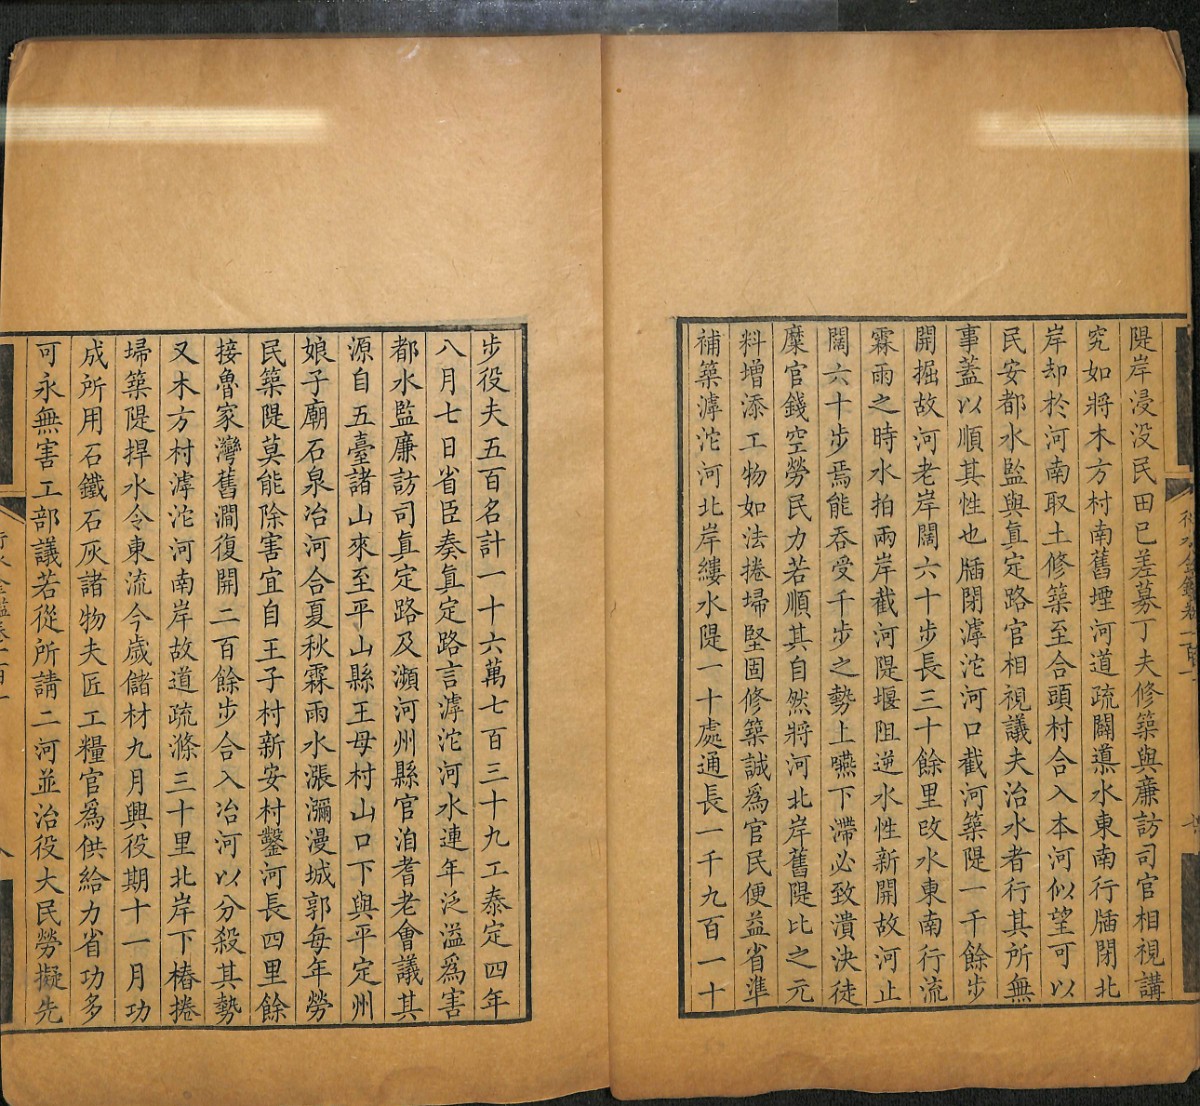 隄岸浸没民田已差募丁夫修築與亷訪司官相視講
究如將木方村南舊堙河道疏闢導水東南行牐閉北
岸却於河南取土修築至合頭村合入本河似望可以
民安都水監與眞定路官相視議夫治水者行其所無
事蓋以順其性也牐閉滹沱河口截河築隄一千餘步
開掘故河老岸闊六十步長三十餘里改水東南行流
霖雨之時水拍兩岸截河隄堰阻逆水性新開故河止
闊六十步焉能吞受千步之勢上嚥下滯必致潰決徒
糜官錢空勞民力若順其自然將河北岸舊隄比之元
料增添工物如法捲埽堅固修築誠爲官民便益省準
補築滹沱河北岸縷水隄一十處通長一千九百一十
步役夫五百名計一十六萬七百三十九工泰定四年
八月七日省臣奏眞定路言滹沱河水連年泛溢爲害
都水監亷訪司眞定路及瀕河州縣官洎耆老會議其
源自五臺諸山來至平山縣王母村山口下與平定州
娘子廟石泉冶河合夏秋霖雨水漲瀰漫城郭每年勞
民築隄莫能除害宜自王子村新安村鑿河長四里餘
接魯家灣舊澗復開二百餘步合入冶河以分殺其勢
又木方村滹沱河南岸故道疏滌三十里北岸下樁捲
埽築隄捍水令東流今歲儲材九月興役期十一月功
成所用石鐵石灰諸物夫匠工糧官爲供給力省功多
可永無害工部議若從所請二河並治役大民勞擬先